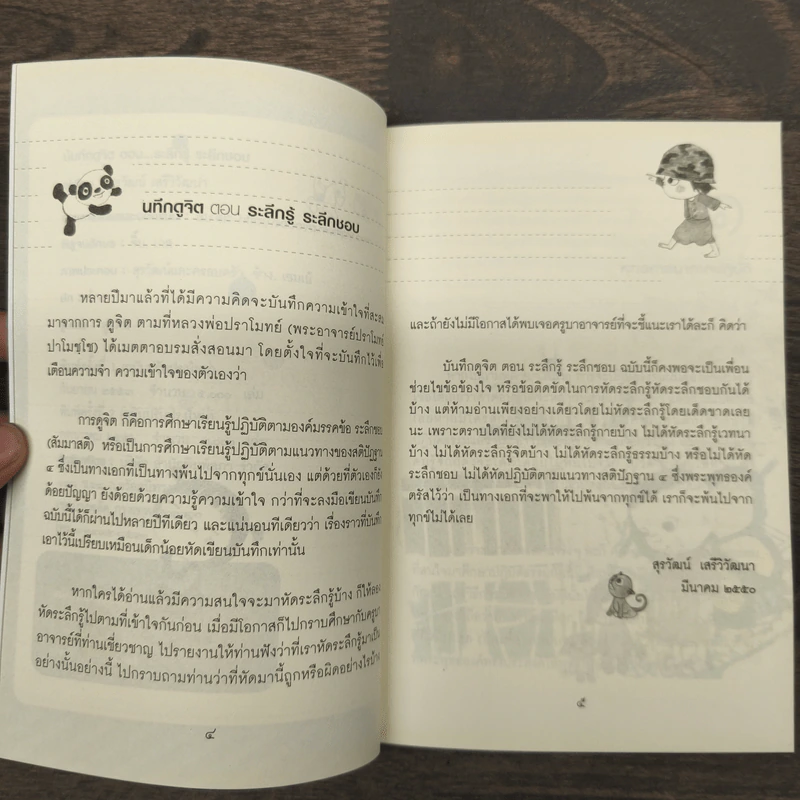 นทึกดูจิต ตอน ระลึกรู้ ระลึกชอบ
หลายปีมาแล้วที่ได้มีความคิดจะบันทึกความเข้าใจที่สะสม
มาจากการ ดูจิต ตามที่หลวงพ่อปราโมทย์ (พระอาจารย์ปราโมทย์
ปาโมชฺโช) ได้เมตตาอบรมสั่งสอนมา โดยตั้งใจที่จะบันทึกไว้เพื่อ
เตือนความจำ ความเข้าใจของตัวเองว่า
การดูจิต ก็คือการศึกษาเรียนรู้ปฏิบัติตามองค์มรรคข้อ ระลึกชอบ
(สัมมาสติ) หรือเป็นการศึกษาเรียนรู้ปฏิบัติตามแนวทางของสติปัฏฐาน
๔ ซึ่งเป็นทางเอกที่เป็นทางพ้นไปจากทุกข์นั่นเอง แต่ด้วยที่ตัวเองก็ยัง
ด้อยปัญญา ยังด้อยด้วยความรู้ความเข้าใจ กว่าที่จะลงมือเขียนบันทึก
ฉบับนี้ได้ก็ผ่านไปหลายปีทีเดียว และแน่นอนทีเดียวว่า เรื่องราวที่บันทึก
เอาไว้นี้เปรียบเหมือนเด็กน้อยหัดเขียนบันทึกเท่านั้น
หากใครได้อ่านแล้วมีความสนใจจะมาหัดระลึกรู้บ้าง ก็ให้ลอง
หัดระลึกรู้ไปตามที่เข้าใจกันก่อน เมื่อมีโอกาสก็ไปกราบศึกษากับครูบา
อาจารย์ที่ท่านเชี่ยวชาญ ไปรายงานให้ท่านฟังว่าที่เราหัดระลึกรู้มาเป็น
อย่างนั้นอย่างนี้ ไปกราบถามท่านว่าที่หัดมานี้ถูกหรือผิดอย่างไรบ้าง
๔
และถ้ายังไม่มีโอกาสได้พบเจอครูบาอาจารย์ที่จะชี้แนะเราได้ละก็ คิดว่า
บันทึกดูจิต ตอน ระลึกรู้ ระลึกชอบ ฉบับนี้ก็คงพอจะเป็นเพื่อน
ช่วยไขข้อข้องใจ หรือข้อติดขัดในการหัดระลึกรู้หัดระลึกชอบกันได้
บ้าง แต่ห้ามอ่านเพียงอย่างเดียวโดยไม่หัดระลึกรู้โดยเด็ดขาดเลย
นะ เพราะตราบใดที่ยังไม่ได้หัดระลึกรู้กายบ้าง ไม่ได้หัดระลึกรู้เวทนา
บ้าง ไม่ได้หัดระลึกรู้จิตบ้าง ไม่ได้หัดระลึกรู้ธรรมบ้าง หรือไม่ได้หัด
ระลึกชอบ ไม่ได้หัดปฏิบัติตามแนวทางสติปัฏฐาน ๔ ซึ่งพระพุทธองค์
ตรัสไว้ว่า เป็นทางเอกที่จะพาให้ไปพ้นจากทุกข์ได้ เราก็จะพ้นไปจาก
ทุกข์ไม่ได้เลย
สุรวัฒน์ เสรีวิวัฒนา
มีนาคม ๒๕๕๐
๕